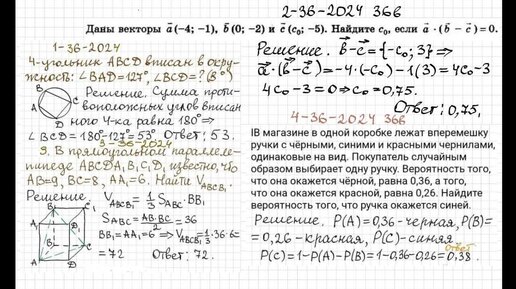 2-36-2024 36б
Даны векторы a⃗(−4; −1), b⃗(0; −2) и c⃗(c₀; −5). Найдите c₀, если a⃗ · (b⃗ − c⃗) = 0.
Решение. b⃗−c⃗ = {−c₀; 3} ⇒
a⃗·(b⃗−c⃗) = −4·(−c₀) −1(3) = 4c₀−3
4c₀−3=0 ⇒ c₀=0,75.
Ответ: 0,75.
1-36-2024
4-угольник ABCD вписан в окруж-
ность: ∠BAD=127°, ∠BCD=? (В °)
Решение. Сумма проти-
воположных углов вписан
ного 4-ка равна 180° ⇒
∠BCD=180°-127°=53° Ответ: 53.
3-36-2024
3. В прямоугольном параллеле-
пипеде ABCDA₁B₁C₁D₁ известно, что
AB=9, BC=8, AA₁=6. Найти V_ABCB₁
Решение.
V_ABCB₁ = 1/3 S_ABC · BB₁
S_ABC = AB·BC/2 = 36
BB₁=AA₁=6 ⇒ V_ABCB₁ = 1/3·36·6=
= 72 Ответ: 72.
B₁
C₁
A₁
D₁
B
C
A
D
4-36-2024 36б
IВ магазине в одной коробке лежат вперемешку
ручки с чёрными, синими и красными чернилами,
одинаковые на вид. Покупатель случайным
образом выбирает одну ручку. Вероятность того,
что она окажется чёрной, равна 0,36, а того,
что она окажется красной, равна 0,26. Найдите
вероятность того, что ручка окажется синей.
Решение. P(A)=0,36-черная, P(B)=
=0,26-красная, P(C)-синяя
P(C)=1-P(A)-P(B)=1-0,36-0,26=0,38.
Ответ